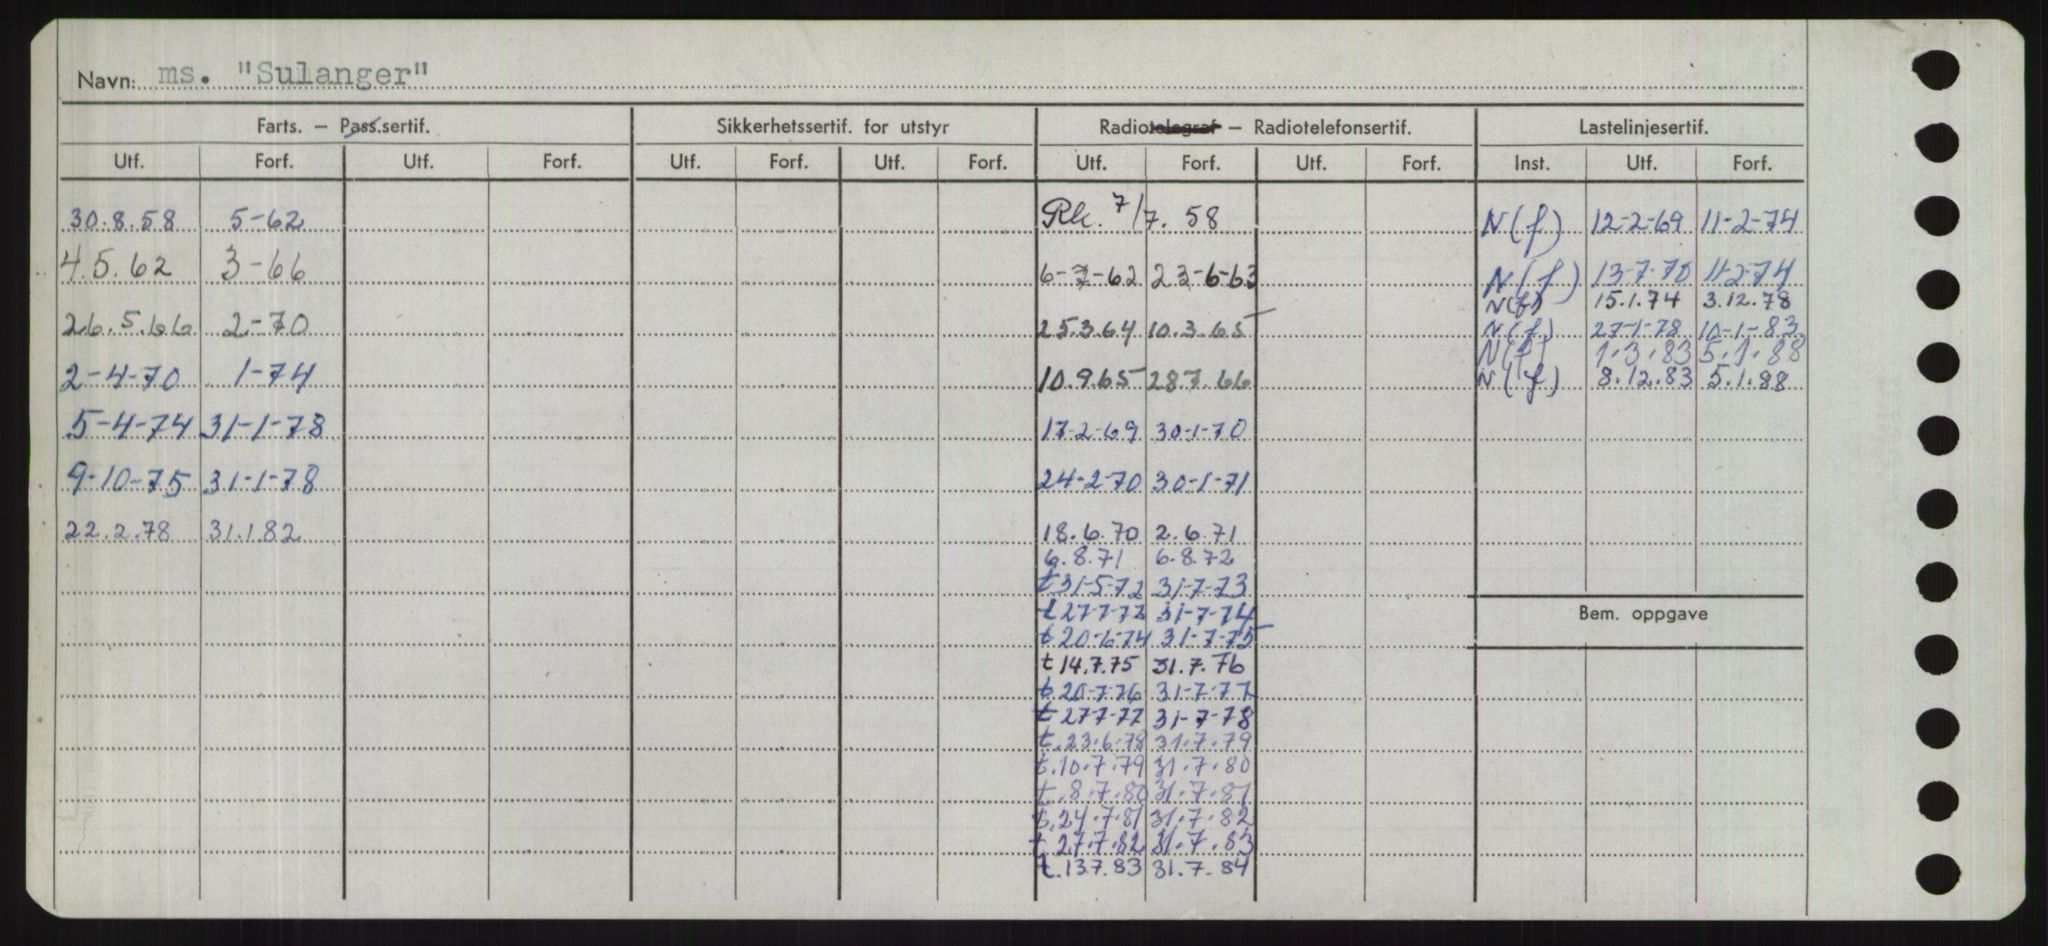 Navn: ms. "Sulanger"
Farts. – Pass.sertif. Sikkerhetssertif. for utstyr Radiotelegraf – Radiotelefonsertif. Lastelinjesertif.
Utf. Forf. Utf. Forf. Utf. Forf. Utf. Forf. Utf. Forf. Utf. Forf. Inst. Utf. Forf.
30.8.58 5-62 Rk. 7/7. 58 N(f) 12-2-69 11-2-74
4.5.62 3-66 6-7-62 23-6-63 N(f) 13-7-70 11-2-74
N(f) 15.1.74 3.12.78
26.5.66 2-70 25.3.64 10.3.65 N(f) 27-1-78 10-1-83
N(f) 1.3.83 5.1.88
2-4-70 1-74 10.9.65 28.7.66 N(f) 8.12.83 5.1.88
5-4-74 31-1-78 17-2-69 30-1-70
9-10-75 31-1-78 24-2-70 30-1-71
22.2.78 31.1.82 18.6.70 2.6.71
6.8.71 6.8.72
t 31-5-72 31-7-73
t 27-7-73 31-7-74
Bem. oppgave
t 20-6-74 31-7-75
t 14.7.75 31.7.76
t 20-7-76 31-7-77
t 27-7-77 31-7-78
t. 23.6.78 31.7.79
t. 10.7.79 31.7.80
t. 8.7.80 31.7.81
t. 24.7.81 31.7.82
t 27.7.82 31.7.83
t. 13.7.83 31.7.84